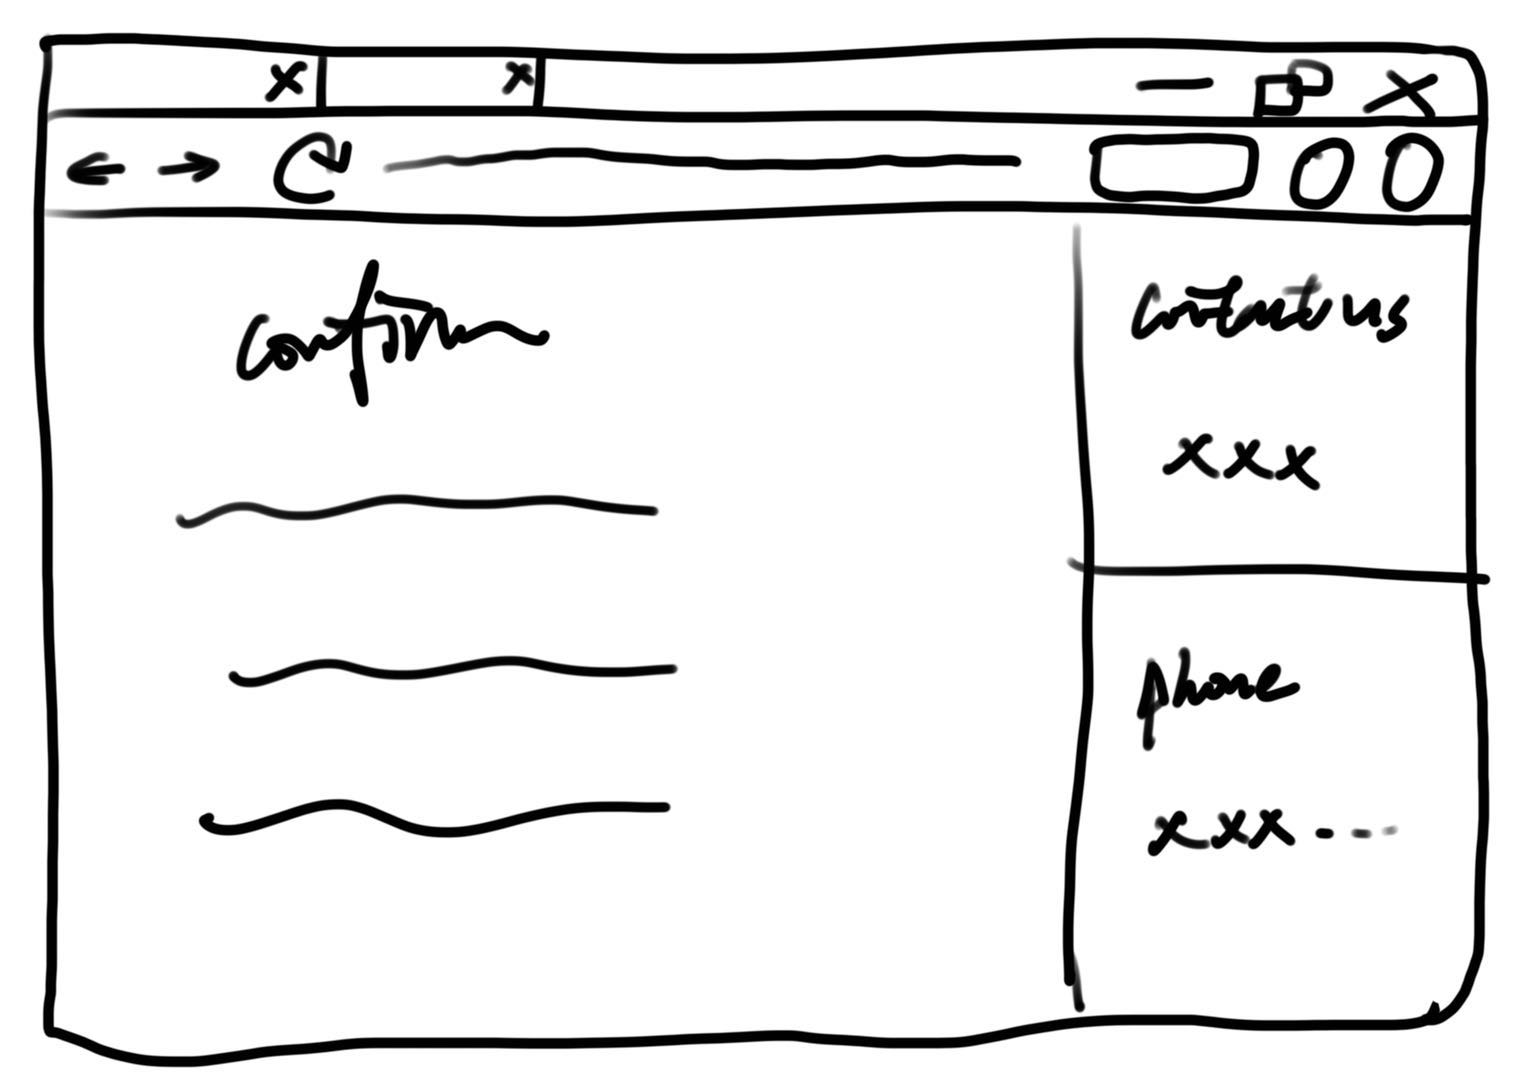 confirm
contact us
xxx
phone
xxx...